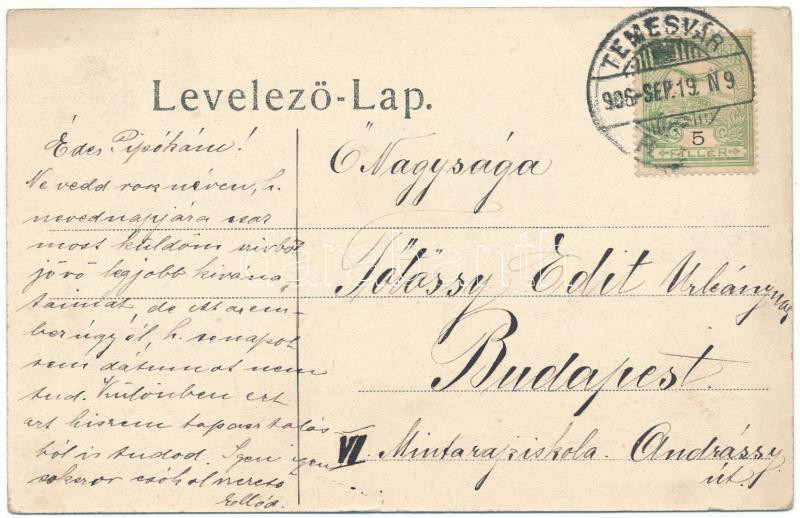 Levelező-Lap.
TEMESVÁR
906-SEP.19. N9
5
FILLER
Édes Pipókám!
Ne vedd rossz néven, h.
nevednapjára csak
most küldöm szivből
jövő legjobb kivána
taimat, de itt az em-
ber úgy él, h. se napot
sem dátumot nem
tud. Különben ezt
azt hiszem tapasztalás
ból is tudod. Igen igen
sokszor csókol szerető
Ő Nagysága
Edit Urbánynál
Budapest.
VI. Mintarajziskola. Andrássy
út.